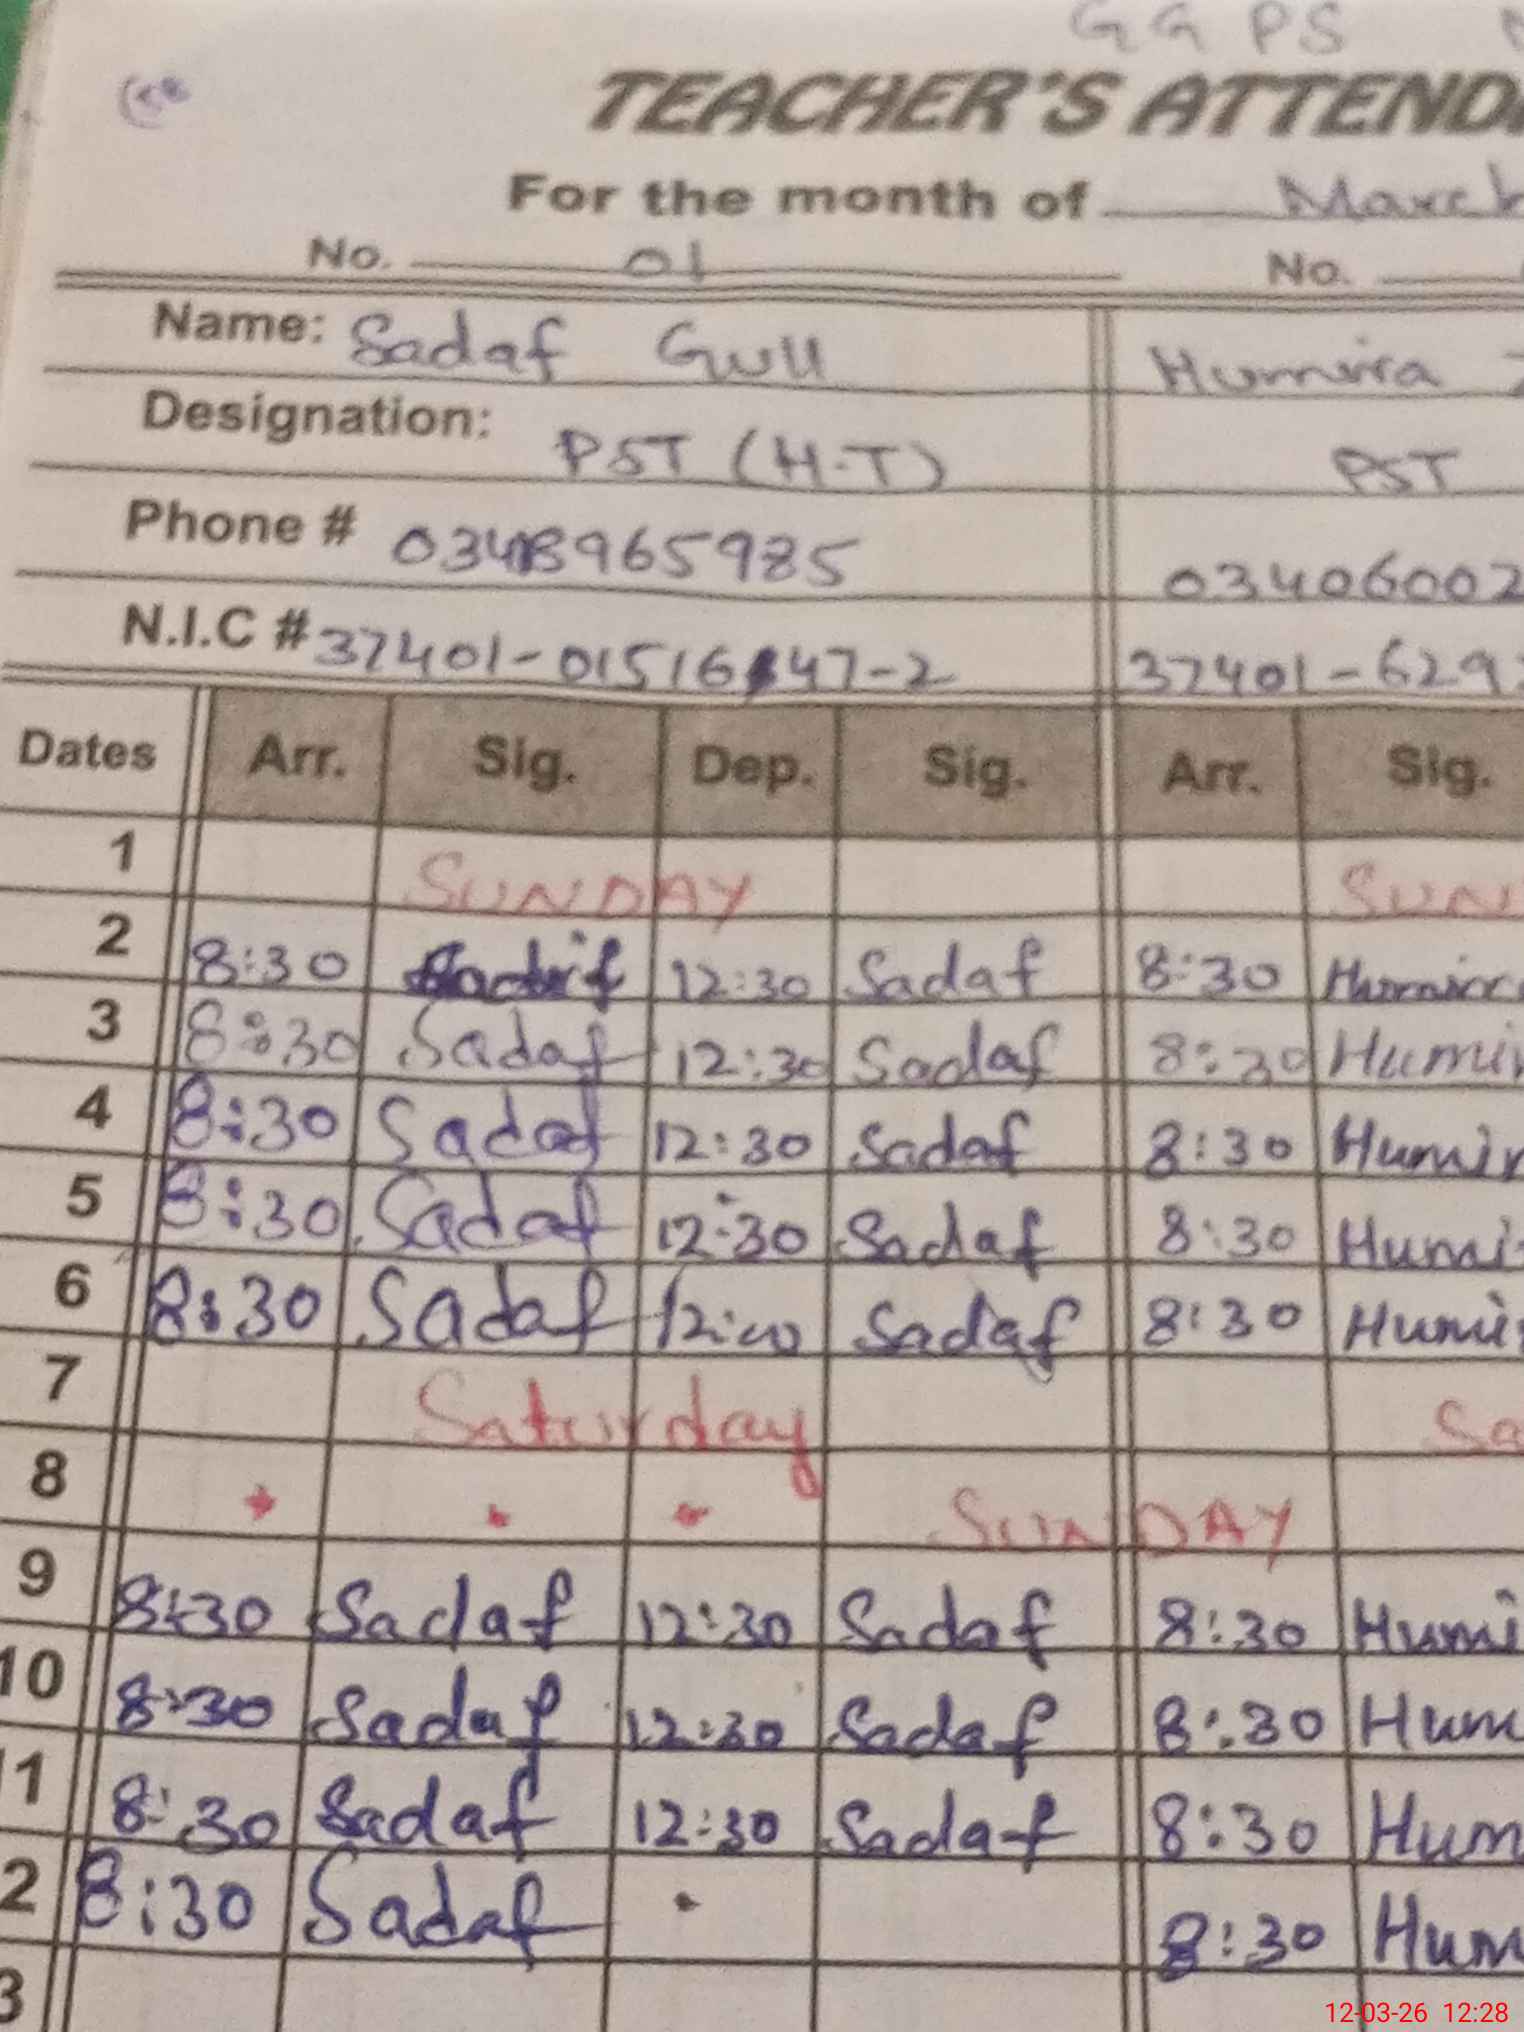 GGPS
TEACHER'S ATTEND
For the month of March
No. 01 No.
Name: Sadaf Gull Humira
Designation: PST (H.T) PST
Phone # 03406002
N.I.C # 37401-01516 47-2 37401-629
Dates Arr. Sig. Dep. Sig. Arr. Sig.
1 SUNDAY SUN
2 8:30 12:30 Sadaf 8:30 Humira
3 8:30 Sadaf 12:30 Sadaf 8:30 Humir
4 8:30 Sadaf 12:30 Sadaf 8:30 Humir
5 8:30 Sadaf 12:30 Sadaf 8:30 Humi
6 8:30 Sadaf 12:00 Sadaf 8:30 Humi
7 Saturday Sa
8 SUNDAY
9 8:30 Sadaf 12:30 Sadaf 8:30 Humi
10 8:30 Sadaf 12:30 Sadaf 8:30 Hum
11 8:30 Sadaf 12:30 Sadaf 8:30 Hum
2 8:30 Sadaf 8:30 Hum
3
12-03-26 12:28